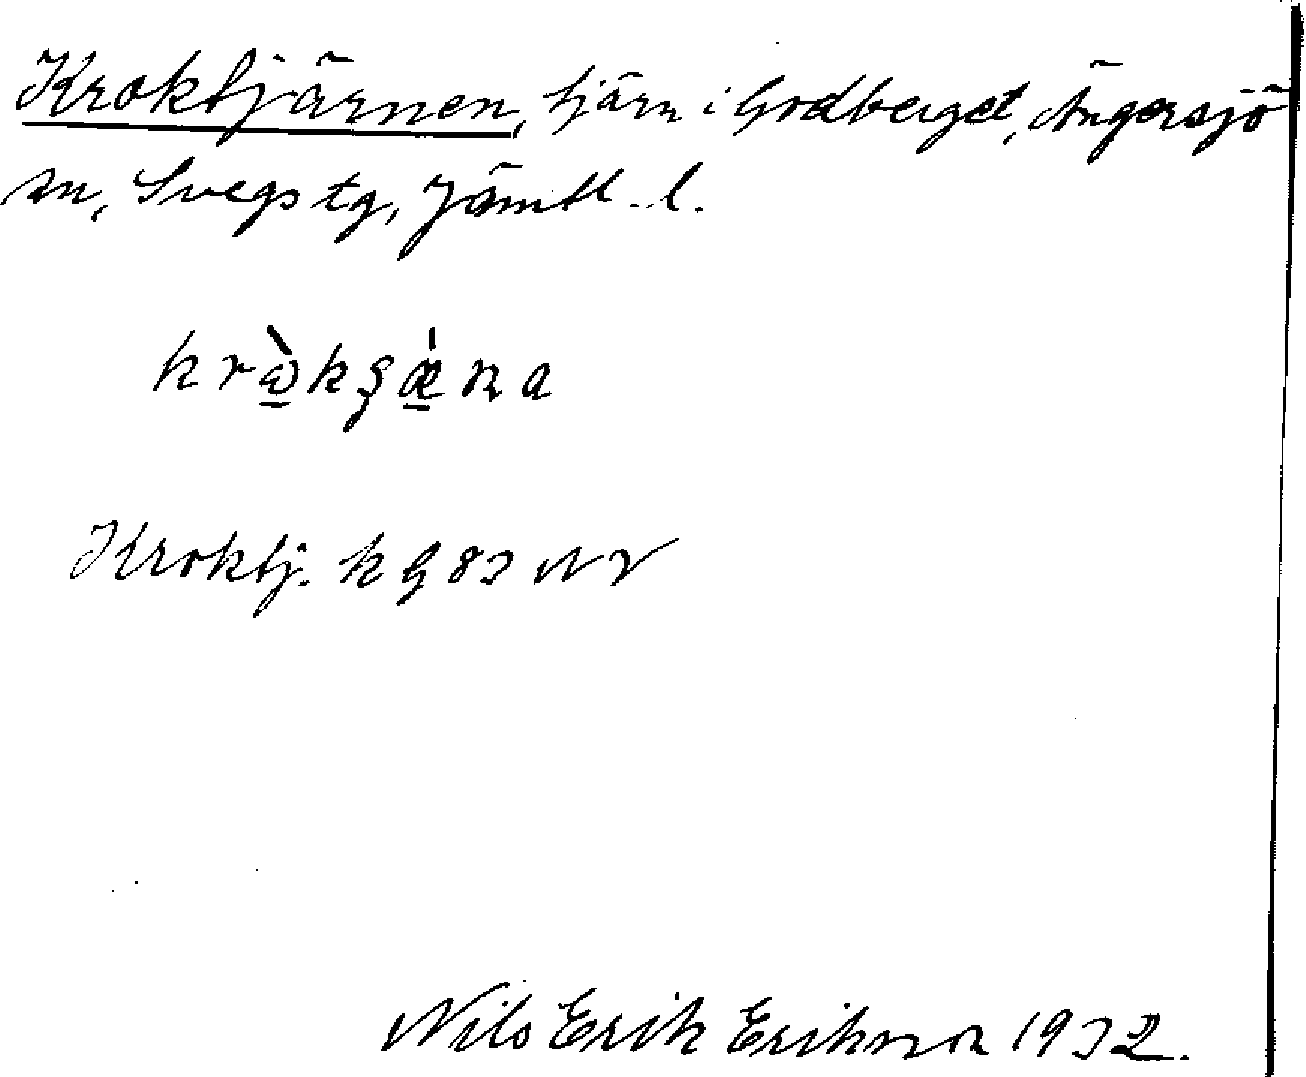 Kroktjärnen, tjärn i Godberget, Ängersjö
sn, Svegs tg, Jämtl. l.
krὼ̲kʂǽ̲na
Kroktj. k G 83 NV
Nils Erik Erikson 1932.